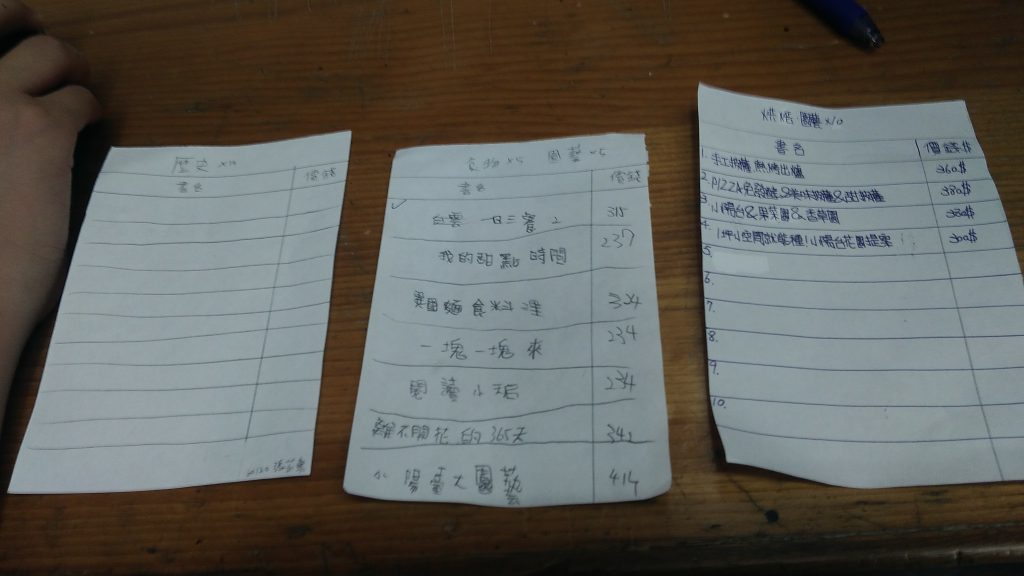 歷史 x10
書名 價錢
食物 x5 園藝 x5
書名 價錢
白雲 一日三餐 2 315
我的甜點時間 237
雞麵食料理 324
一塊一塊來 234
園藝小 234
離不開花的365天 342
小陽臺大園藝 414
烘焙 園藝 x10
書名 價錢$
1. 手工 熱烤出爐 360$
2. PIZZA免發酵&美味 & 380$
3. 小陽台&果菜園&香草園 380$
4. 1坪小空間就能種!小陽台花園提案 300$
5.
6.
7.
8.
9.
10.